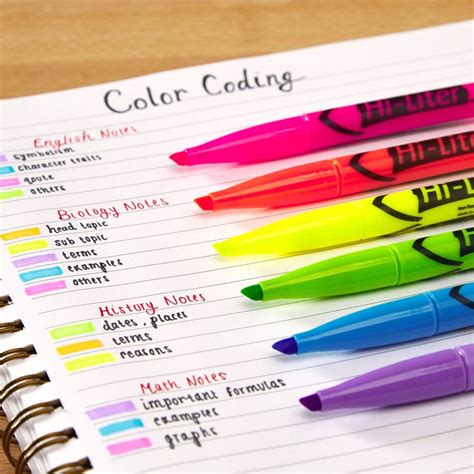 Color Coding
English Notes
symbolism
character traits
qoute
others
Biology Notes
head topic
sub topic
terms
examples
others
History Notes
dates, places
terms
reasons
Math Notes
important formulas
examples
graphs
Hi-Liter
Hi-Liter
Hi-Lit